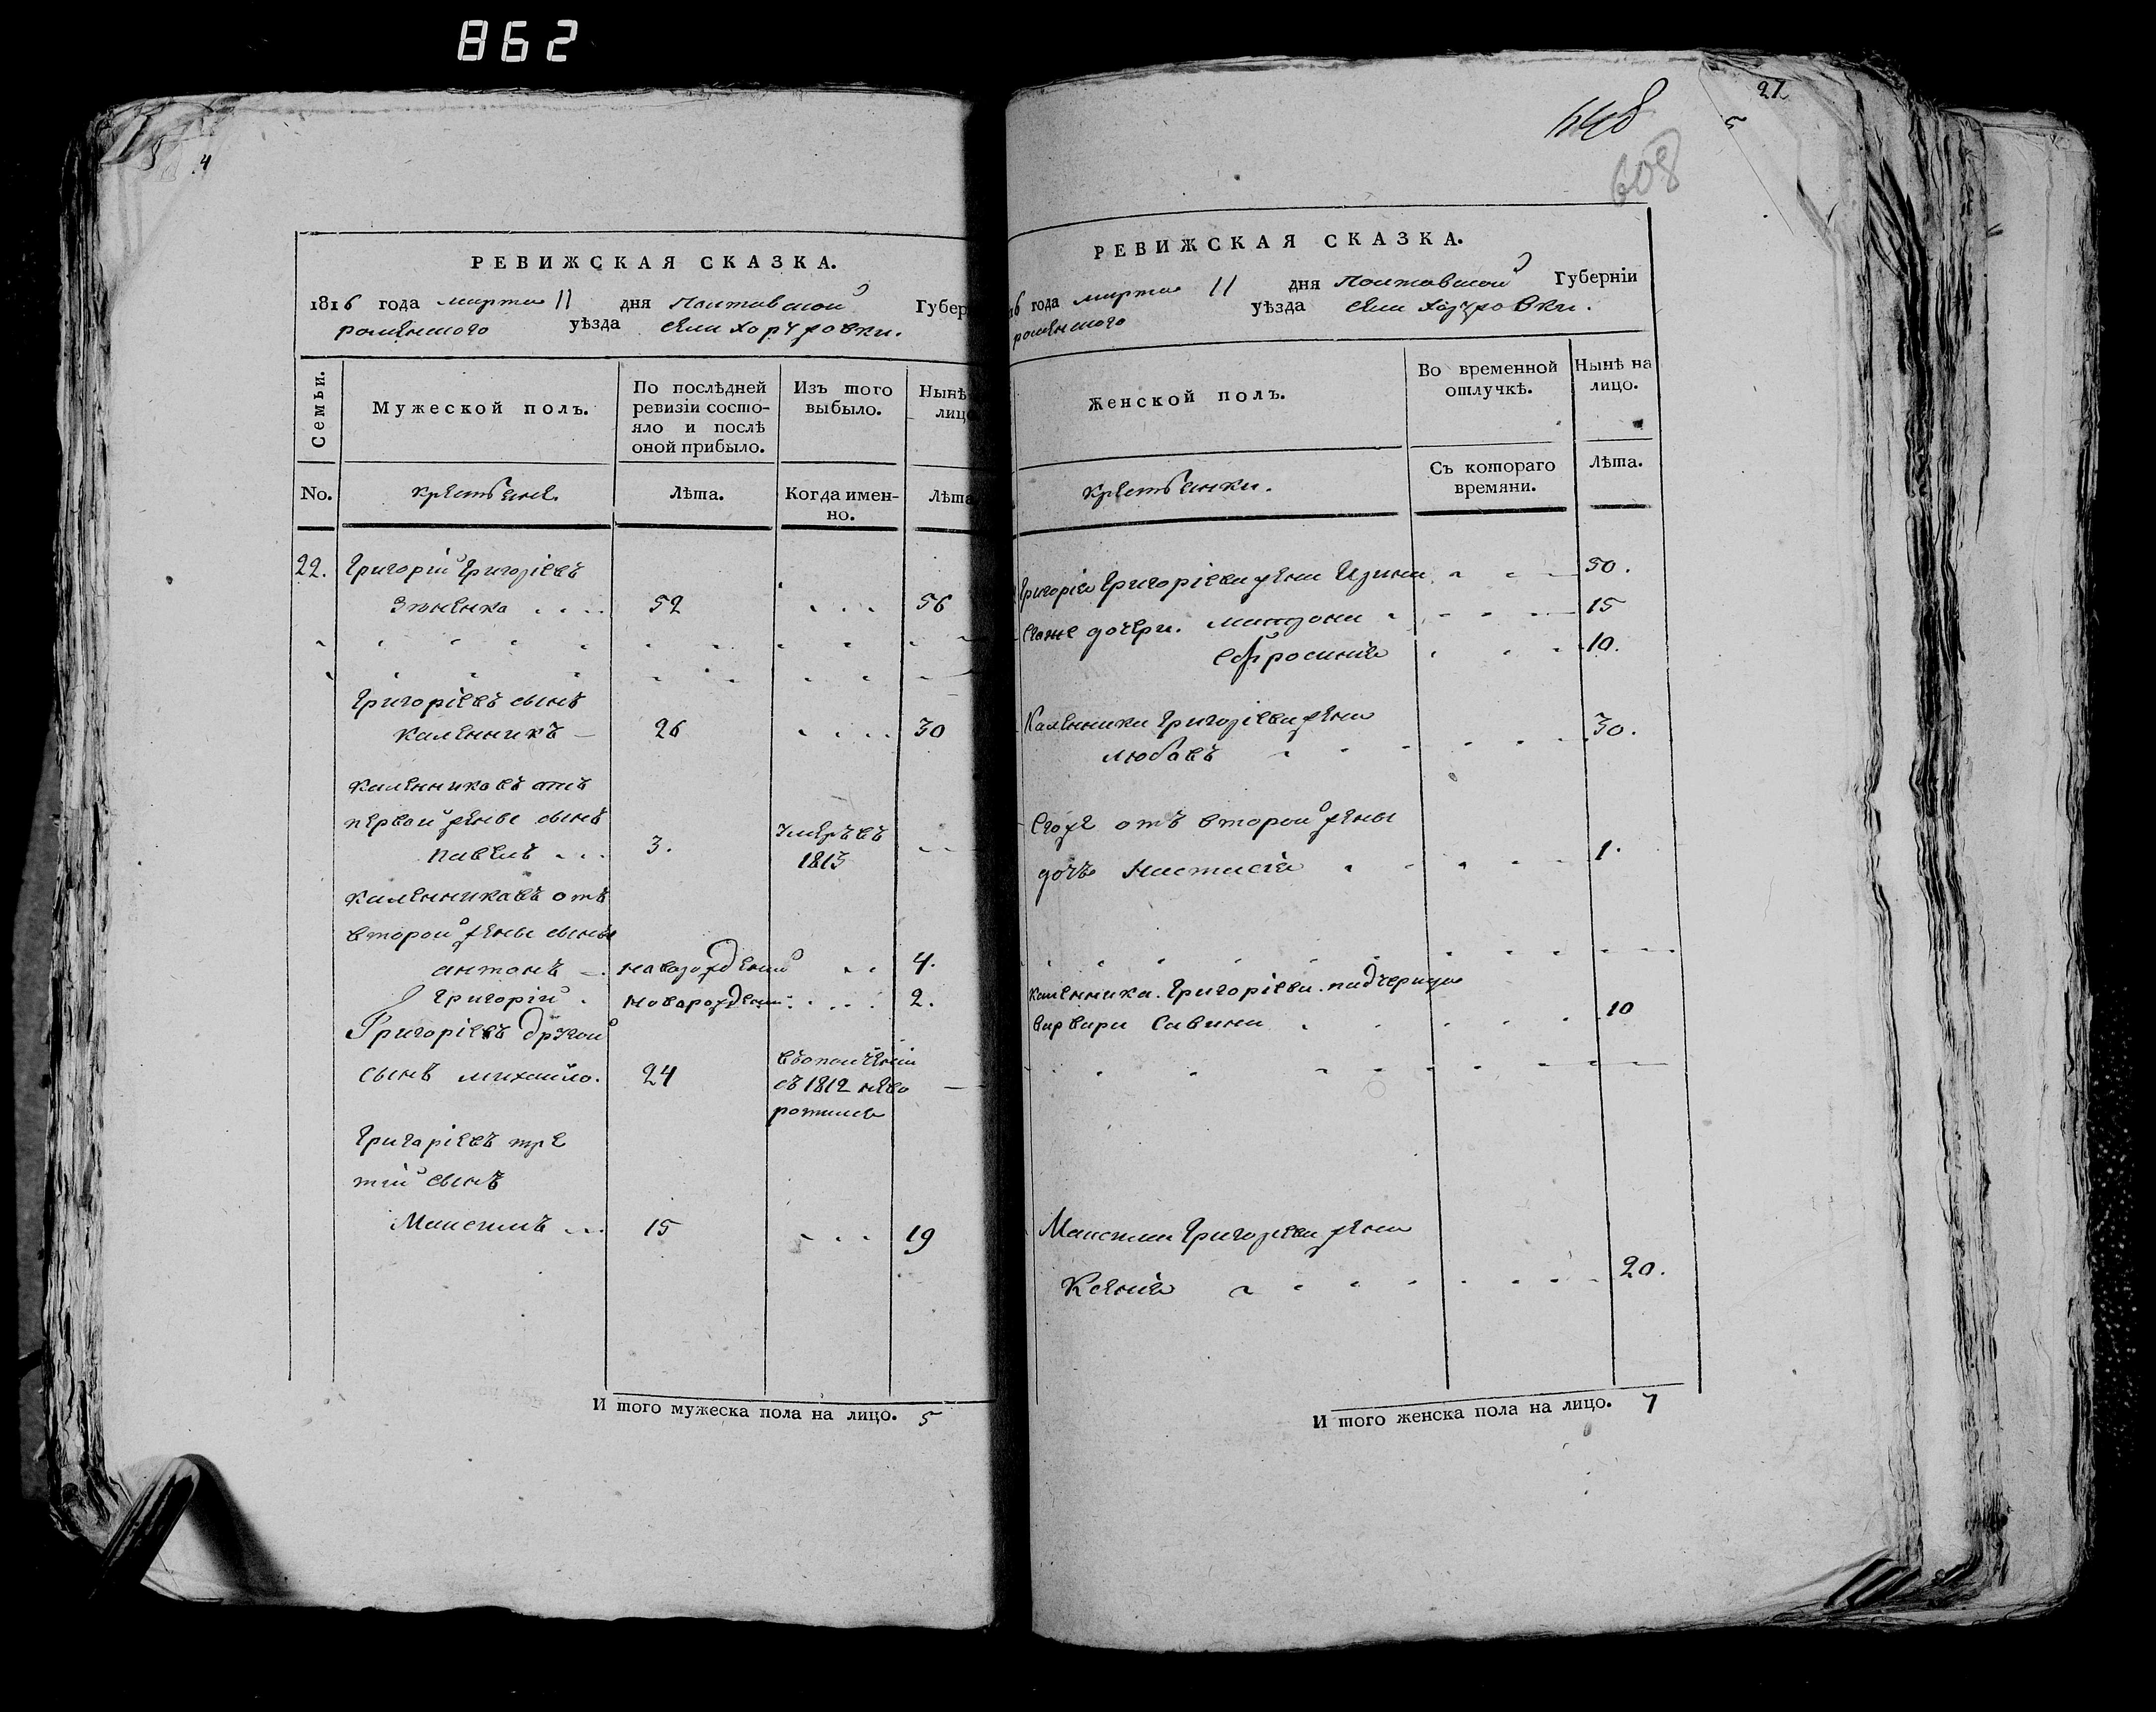 862
4
РЕВИЖСКАЯ СКАЗКА.
1816 года марта 11 дня Полтавской Губер
роменского уѣзда села Хоружовки.
Семьи.
Мужеской полъ.
По послѣдней ревизіи состо-
яло и послѣ
оной прибыло.
Изъ того
выбыло.
Нынѣ
лицо
No.
крестьяне.
Лѣта.
Когда имен-
но.
Лѣта
22. Григорій Григоріевъ
52 56
Григоріевъ сынъ
Каленникъ 26 30
Каленниковъ отъ
первой жены сынъ
Павелъ 3. умеръ въ
1813
Каленниковъ отъ
второй жены сыны
антонъ новорожденный 4.
Григорій новорожден: 2.
Григоріевъ другой
сынъ михайло. 24
съ 1812 нево
ротился
Григоріевъ тре
тій сынъ
Максимъ 15 19
И того мужеска пола на лицо. 5
27
5
608
РЕВИЖСКАЯ СКАЗКА.
16 года марта 11 дня Полтавской Губерніи
роменского уѣзда села Хоружовки.
Женской полъ.
Во временной
отлучкѣ.
Нынѣ на
лицо.
крестьянки.
Съ котораго
времяни.
Лѣта.
Григорія Григоріева жена 50.
его же дочери. 15
Ефросинія 10.
Каленника Григоріева жена
любовъ 30.
Егоже отъ второй жены
дочь Настасія 1.
Каленника Григоріева падчерица
варвара Савина 10
Максима Григоріева жена
Ксенія 20.
И того женска пола на лицо. 7